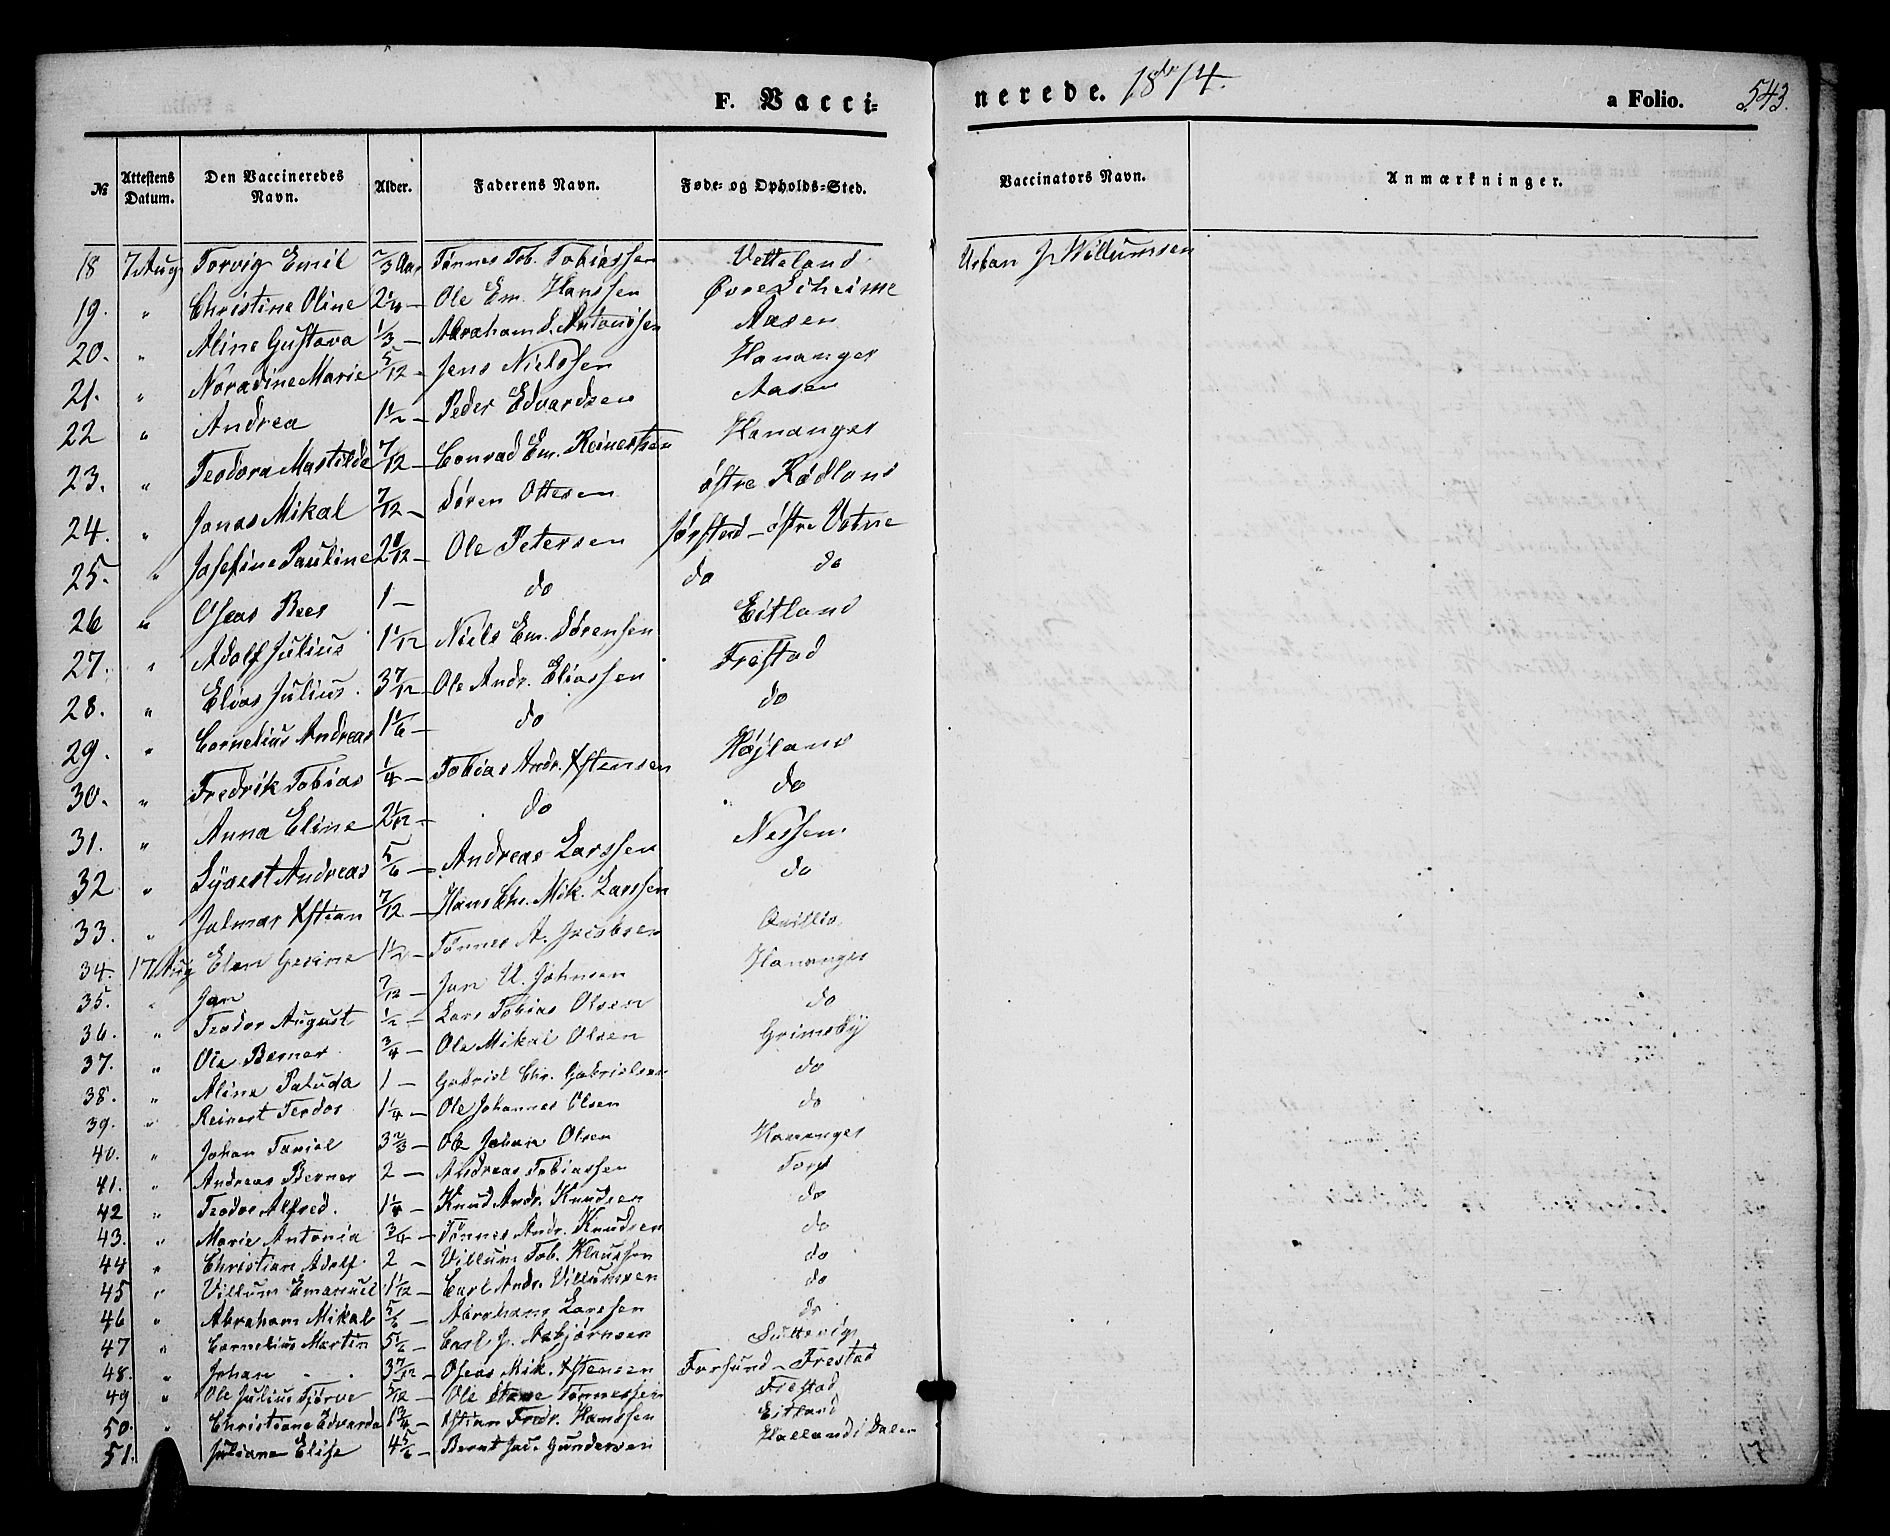 F. Vacci-
nerede. 1874.
a Folio. 543.
№ Attestens Datum. Den Vaccineredes Navn. Alder. Faderens Navn. Føde- og Opholds-Sted. Vaccinators Navn. Anmærkninger.
18 7 Aug Torvig Emil 2/3 Aar Tønnes Tob. Tobiassen Vetteland Urban J. Willumsen
19. " Christine Oline 2 1/4 — Ole Em. Hanssen Øvre
20. " Aline Gustava 1/3 — Abraham S. Antonsen Aasen
21. " Noradine Marie 5/12 — Jens Nielssen Hananger
22 " Andrea 1 1/2 — Peder Edvardsen Aasen
23. " Teodora Mathilde 7/12 — Conrad Em. Reinertsen Hananger
24. " Jonas Mikal 7/12 — Søren Ottesen østre Rødland
25. " Josefine Pauline 2 11/12 — Ole Petersen Jørstad – østre Vatne
26 " Oseas Beer 1 — do do do
27. " Adolf Julius 1 1/12 Niels Em. Sørensen Eitland
28. " Elias Julius. 3 7/12 — Ole Andr. Eliassen Frestad
29. " Cornelius Andreas 1 1/6 — do do
30. " Fredrik Tobias 1/4 — Tobias Andr. Xstensen Højland
31. " Anna Eline 2 1/12 — do do
32 " Syvert Andreas 5/6 — Andreas Larssen Nessen.
33. " Jalmar Xstian 7/12 — Hans Chr. Mik. Larssen do
34. 17 Aug Elen Gesine 1 1/2 — Tønnes A. Jacobsen Qvillio
35. " Jan 7/12 — Jan U. Johnsen Hananger
36. " Teodor August 1/2 — Lars Tobias Olsen do
37. " Ole Berner 3/4 — Ole Mikal Olsen Grimsby
38. " Aline Paluda 1 — Gabriel Chr. Gabrielsen do
39. " Reinert Teodor 1 1/4 — Ole Johannes Olsen do
40. " Johan Taniel 3 2/3 — Ole Johan Olsen Hananger
41. " Andreas Berner 2 — Andreas Tobiassen Torp
42 " Teodor Alfred. 1 1/4 — Knud Andr. Knudsen do
43. " Marie Antonia 3/4 — Tønnes Andr. Knudsen do
44 " Christian Adolf 2 — Villum Tob. Klaussen do
45 " Villum Emanuel 1 1/12 — Carl Andr. Villumsen do
46 " Abraham Mikal 5/6 — Abraham Larssen do
47 " Cornelius Martin 5 1/2 — Carl J. Asbjørnsen
48. " Johan 3 7/12 — Oseas Mik. Xstensen Farsund – Frestad
49 " Ole Julius Tjørve 5/12 — Ole Tønnessen Frestad
50. " Christiane Edvarda 1 3/4 — Xstian Fredr. Hanssen Eitland
51. " Juliane Elise 4 5/6 — Bernt Jac. Gundersen Halland i Dalen